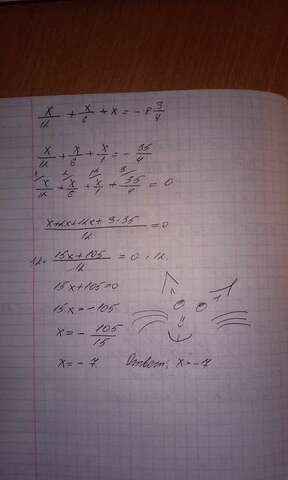 x/12 + x/6 + x = -8 3/4
x/12 + x/6 + x/1 = - 35/4
1/ 2/ 12/ 3/
x/12 + x/6 + x/1 + 35/4 = 0
x+2x+12x+3·35/12 = 0
12· 15x+105/12 = 0 · 12
15x+105=0
15x=-105
x= - 105/15
x= - 7 Ответ: x=-7